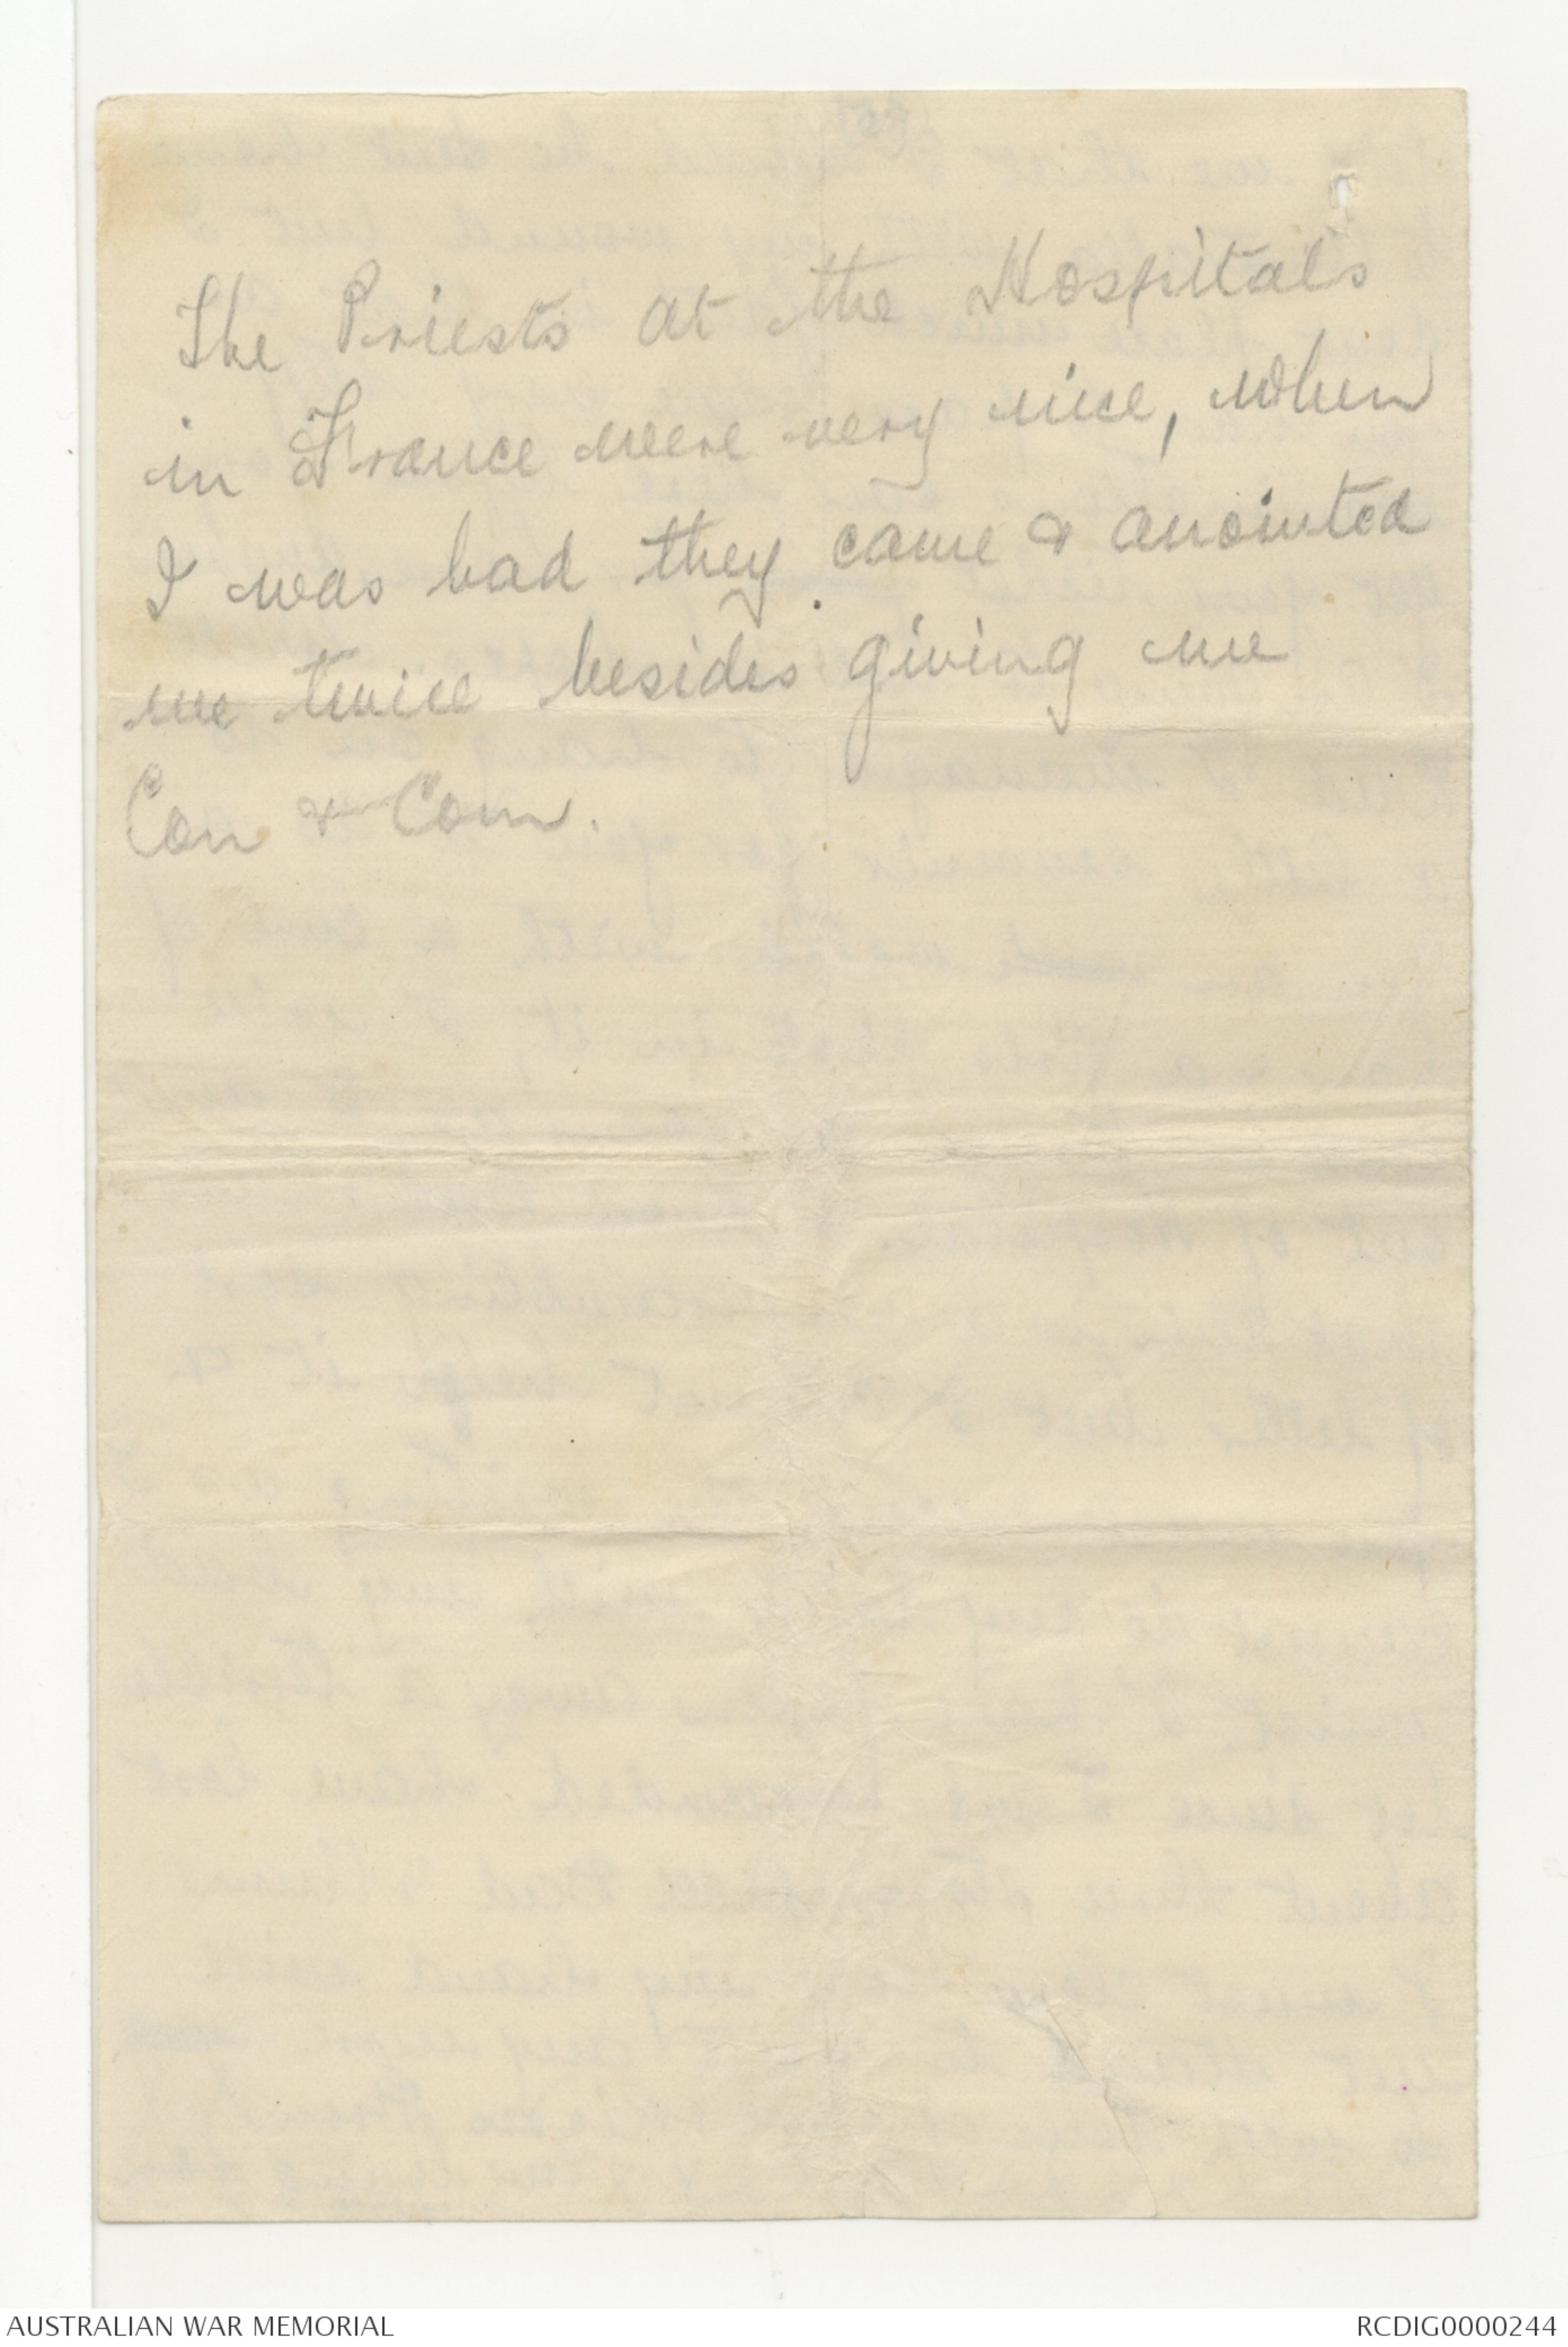 The Priests at the Hospitals
in France were very nice, when
I was bad they came & anointed
me twice besides giving me
Con & Com.
AUSTRALIAN WAR MEMORIAL
RCDIG0000244